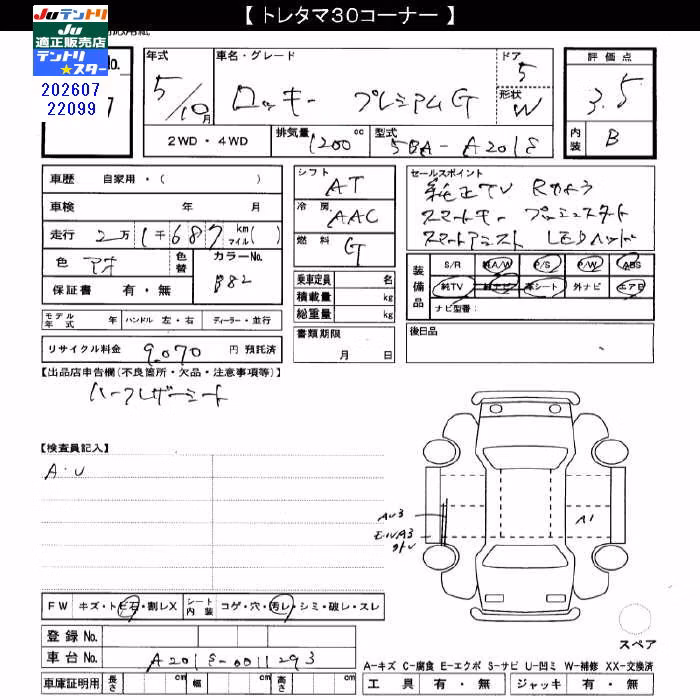 【 トレタマ30コーナー 】
Juテントリ
Ju
適正販売店
テントリ
★スター
202607
22099
年式 車名・グレード ドア 評価点
5/10月 ロッキー プレミアムG 5 3.5
形状 W
2WD・4WD 排気量 1200cc 型式 5BA-A201S 内装 B
車歴 自家用・( )
車検 年 月
走行 2万1千687 km マイル( )
色 アオ 色替 カラーNo. B82
保証書 有・無
シフト AT
冷房 AAC
燃料 G
乗車定員 名
積載量 kg
総重量 kg
セールスポイント
純正TV Rカメラ
スマートキー プッシュスタート
スマートアシスト LEDヘッド
装備品 S/R 純A/W P/S P/W ABS
純TV 純ナビ 革シート 外ナビ エアB
ナビ型番:
モデル年式 年 ハンドル 左・右 ディーラー・並行
リサイクル料金 9,070 円 預託済
書類期限
月 日
後日品
【出品店申告欄(不良箇所・欠品・注意事項等)】
ハーフレザーシート
【検査員記入】
A・U
AU3
A1
FW キズ・トビ石・割レX シート内装 コゲ・穴・汚レ・シミ・破レ・スレ
登録No.
車台No. A201S-0011293
車庫証明用 長さ cm 幅 cm 高さ cm
スペア
A-キズ C-腐食 E-エクボ S-サビ U-凹ミ W-補修 XX-交換済
工具 有・無 ジャッキ 有・無